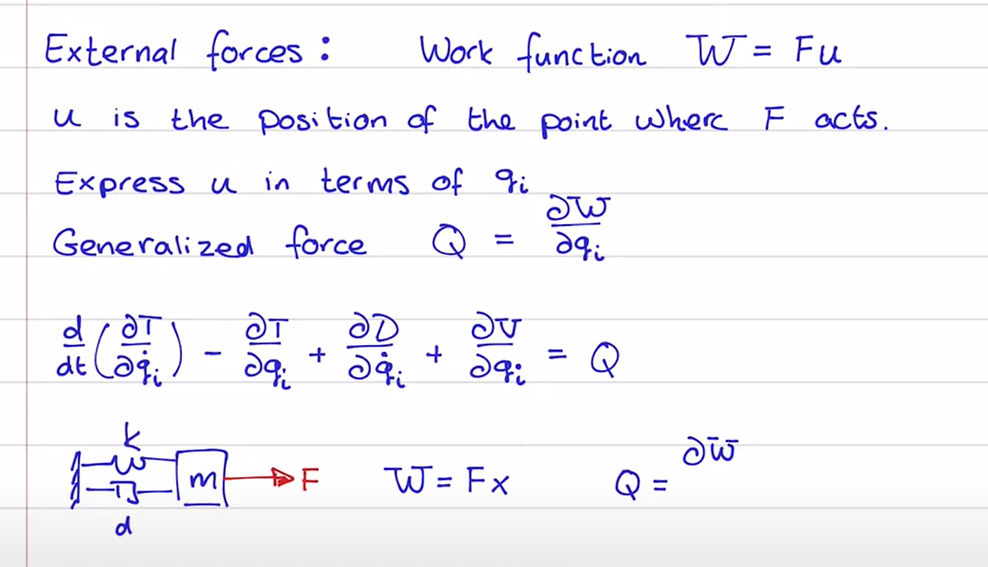 External forces: Work function W = Fu
u is the position of the point where F acts.
Express u in terms of qi
Generalized force Q = ∂W/∂qi
d/dt(∂T/∂q̇i) - ∂T/∂qi + ∂D/∂q̇i + ∂V/∂qi = Q
k
m F W = Fx Q = ∂W
d